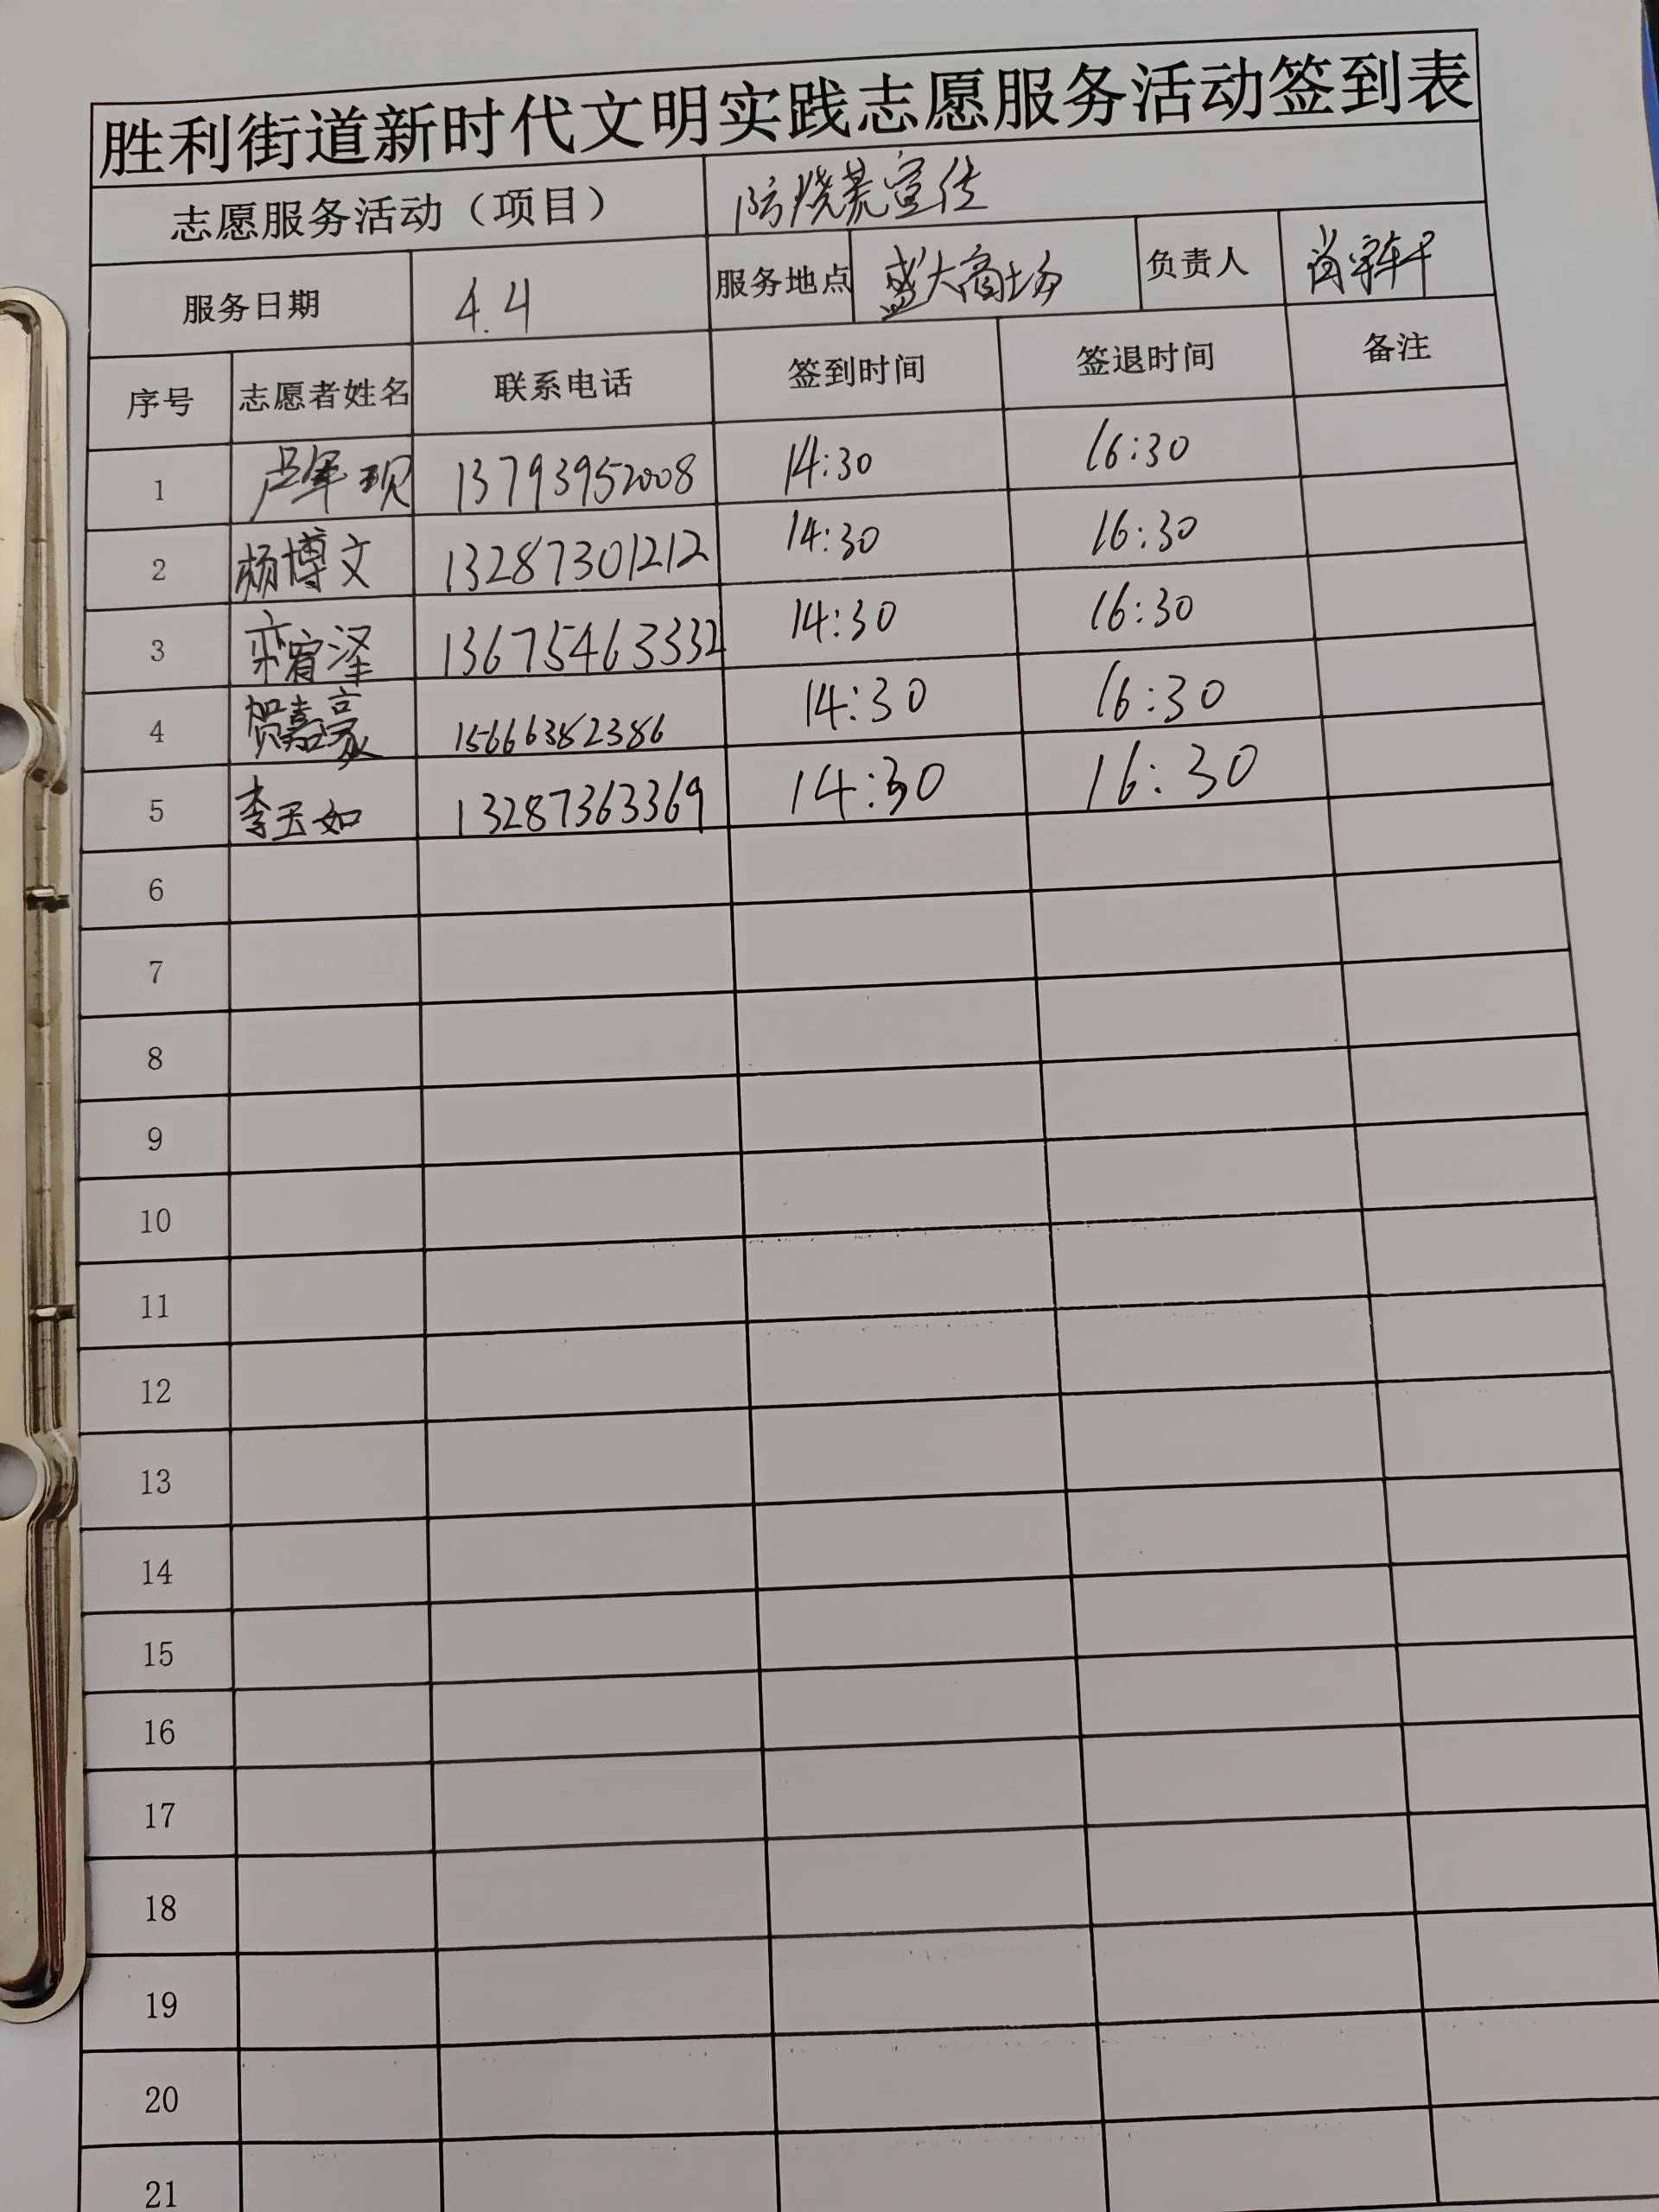 胜利街道新时代文明实践志愿服务活动签到表
志愿服务活动（项目） 防烧荒宣传
服务日期 4.4 服务地点 盛大商场 负责人 肖宇轩
序号 志愿者姓名 联系电话 签到时间 签退时间 备注
1 卢军现 13793952008 14:30 16:30
2 杨博文 13287301212 14:30 16:30
3 栾宥泽 13675463332 14:30 16:30
4 贺嘉豪 15666382386 14:30 16:30
5 李玉如 13287363369 14:30 16:30
6
7
8
9
10
11
12
13
14
15
16
17
18
19
20
21